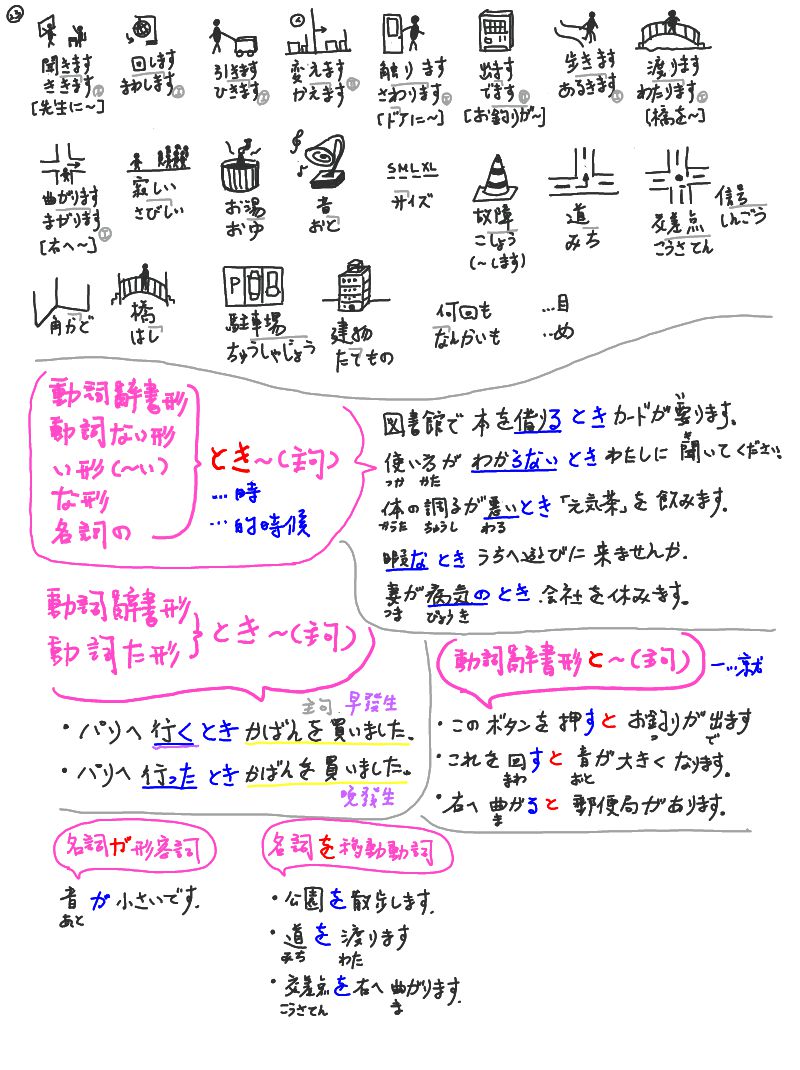 23
聞きます
ききます I
[先生に〜]
回します
まわします I
引きます
ひきます I
変えます
かえます II
触ります
さわります I
[ドアに〜]
出ます
でます II
[お釣りが〜]
歩きます
あるきます I
渡ります
わたります I
[橋を〜]
曲がります
まがります I
[右へ〜]
寂しい
さびしい
お湯
おゆ
音
おと
S M L XL
サイズ
故障
こしょう
(〜します)
道
みち
交差点
こうさてん
信号
しんごう
角かど
橋
はし
P
駐車場
ちゅうしゃじょう
建物
たてもの
何回も
なんかいも
…目
…め
動詞辞書形
動詞ない形
い形(〜い)
な形
名詞の
とき〜(主句)
…時
…的時候
図書館で 本を借りる とき カードが要ります。
い
使い方が わからない とき わたしに 聞いてください
つか かた
き
体の調子が悪いとき「元気茶」を飲みます。
からだ ちょうし わる
暇な とき うちへ遊びに 来ませんか。
妻が病気の とき 会社を休みます。
つま びょうき
動詞辞書形
動詞た形
とき〜(主句)
主句 早發生
・パリへ 行く とき かばんを買いました。
・パリへ 行った とき かばんを買いました。
晚發生
動詞辭書形と〜(主句)
一…就
・このボタンを 押すと お釣りが出ます
つ で
・これを 回すと 音が大きく なります。
まわ おと
・右へ 曲がると 郵便局があります。
ま
名詞が形容詞
音 が 小さいです。
あと
名詞を移動動詞
・公園を散歩します。
・道 を 渡ります
みち わた
・交差点を右へ 曲がります。
こうさてん ま